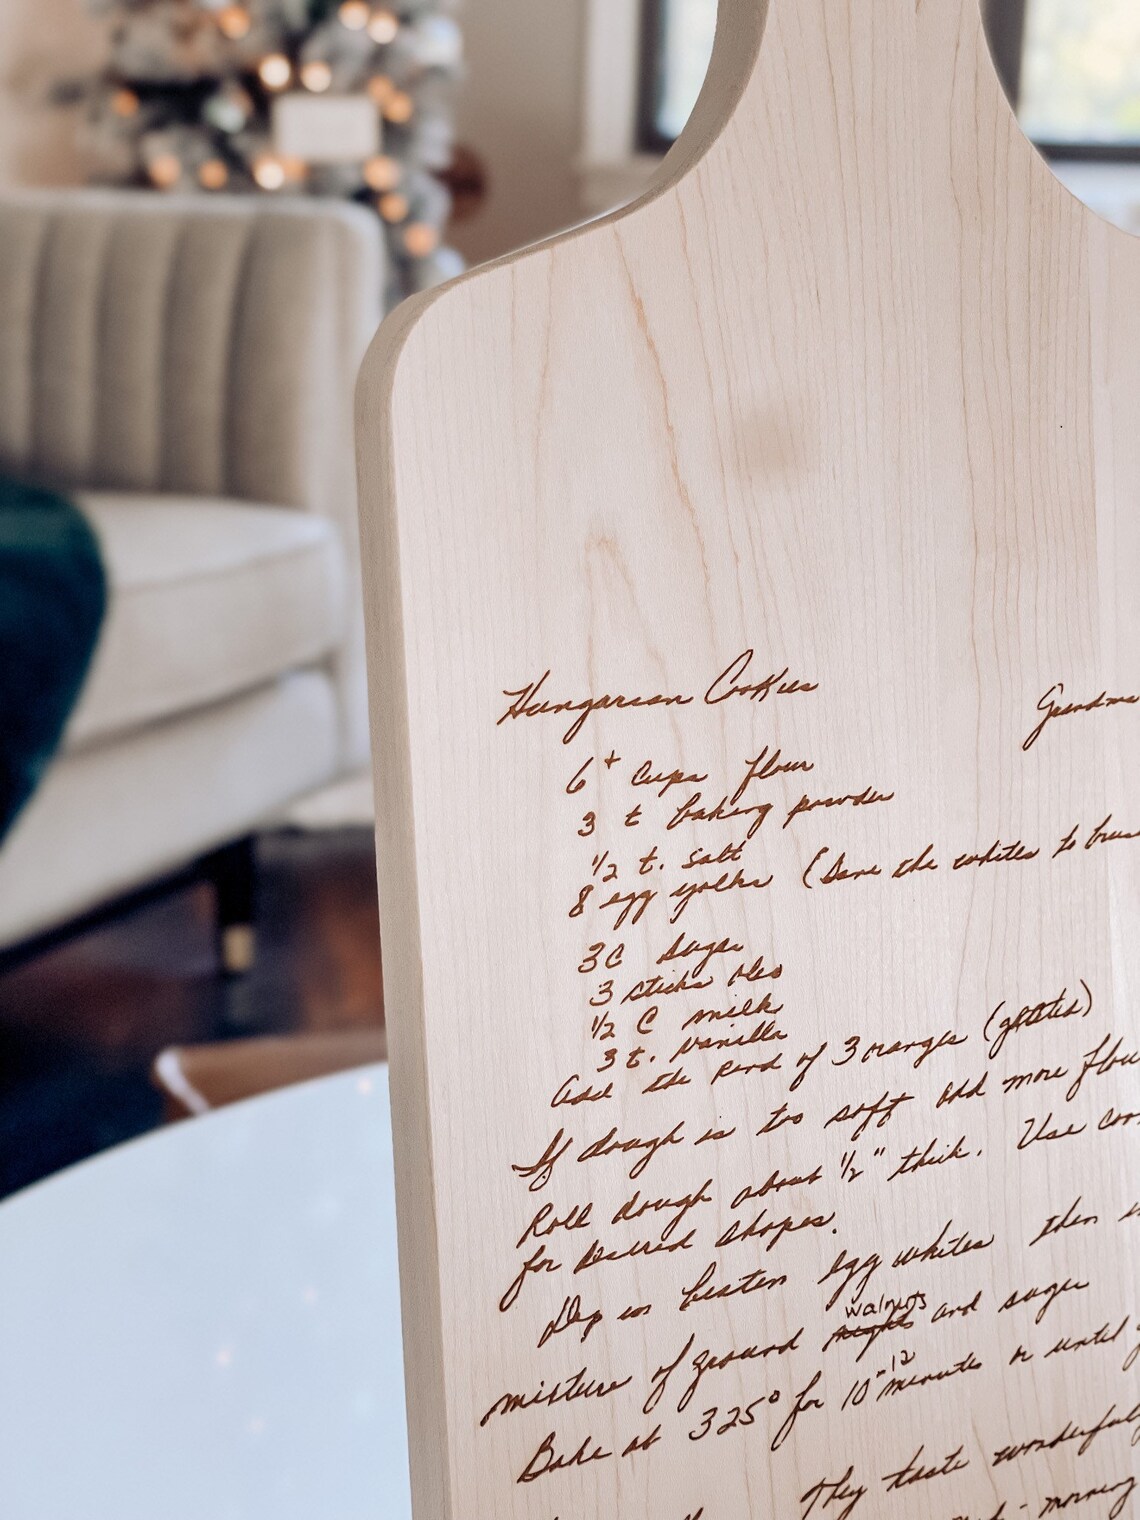 Hungarian Cookies Grandma
6+ cups flour
3 t baking powder
1/2 t. salt
8 egg yolks (Save the whites to brus
3 C sugar
3 sticks oleo
1/2 C milk
3 t. vanilla
Add the rind of 3 oranges (grated)
If dough is too soft add more flou
Roll dough about 1/2" thick. Use coo
for desired shapes.
Dip in beaten egg whites then in
walnuts
mixture of ground and sugar
Bake at 325° for 10-12 minutes or until g
They taste wonderful
morning